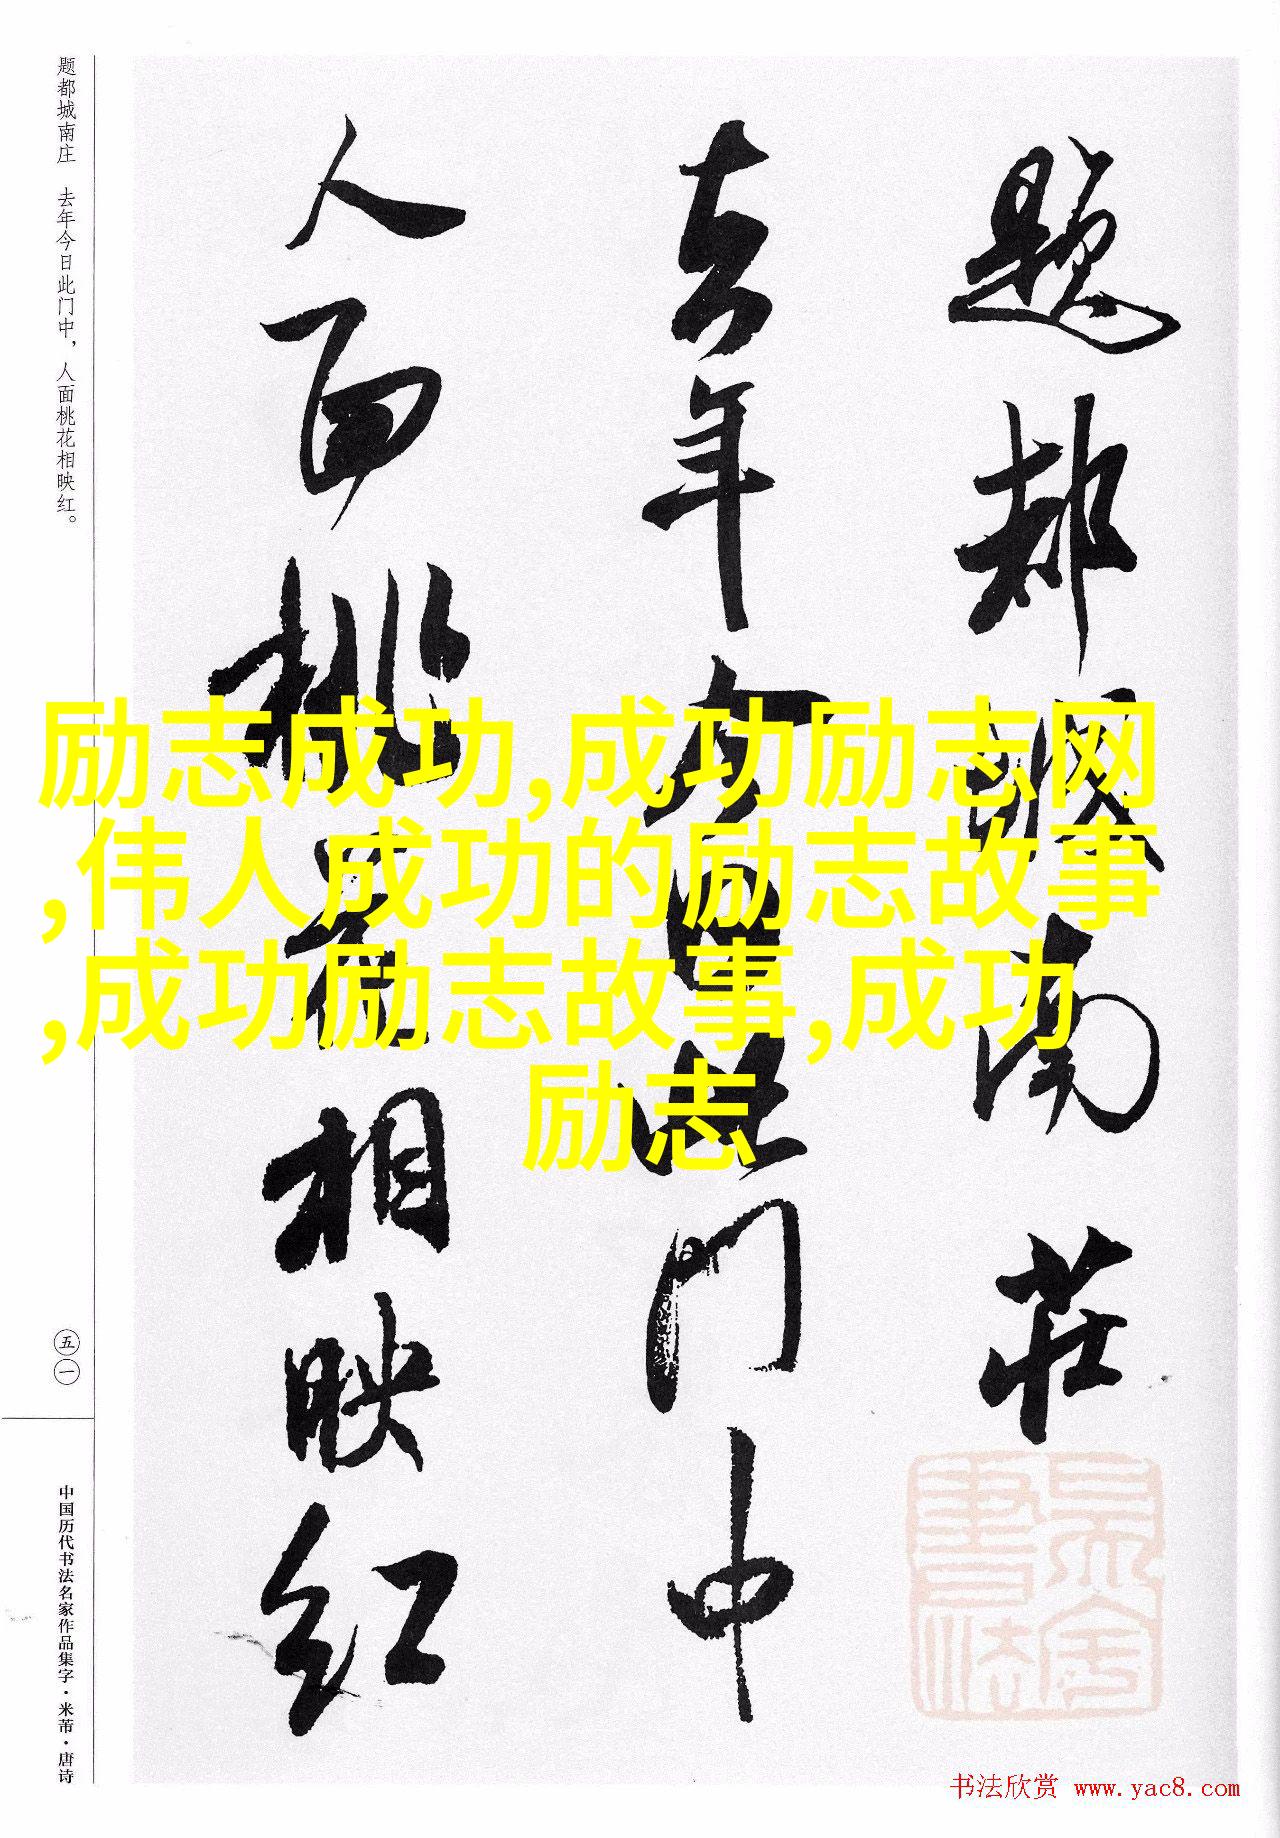 题都城南莊
去年今日此门中
人面桃花相映红
题都城南庄 去年今日此门中，人面桃花相映红。
五一
中国历代书法名家作品集字·米芾·唐诗
励志成功,成功励志网
,伟人成功的励志故事
,成功励志故事,成功
励志
书法欣赏 www.yac8.com